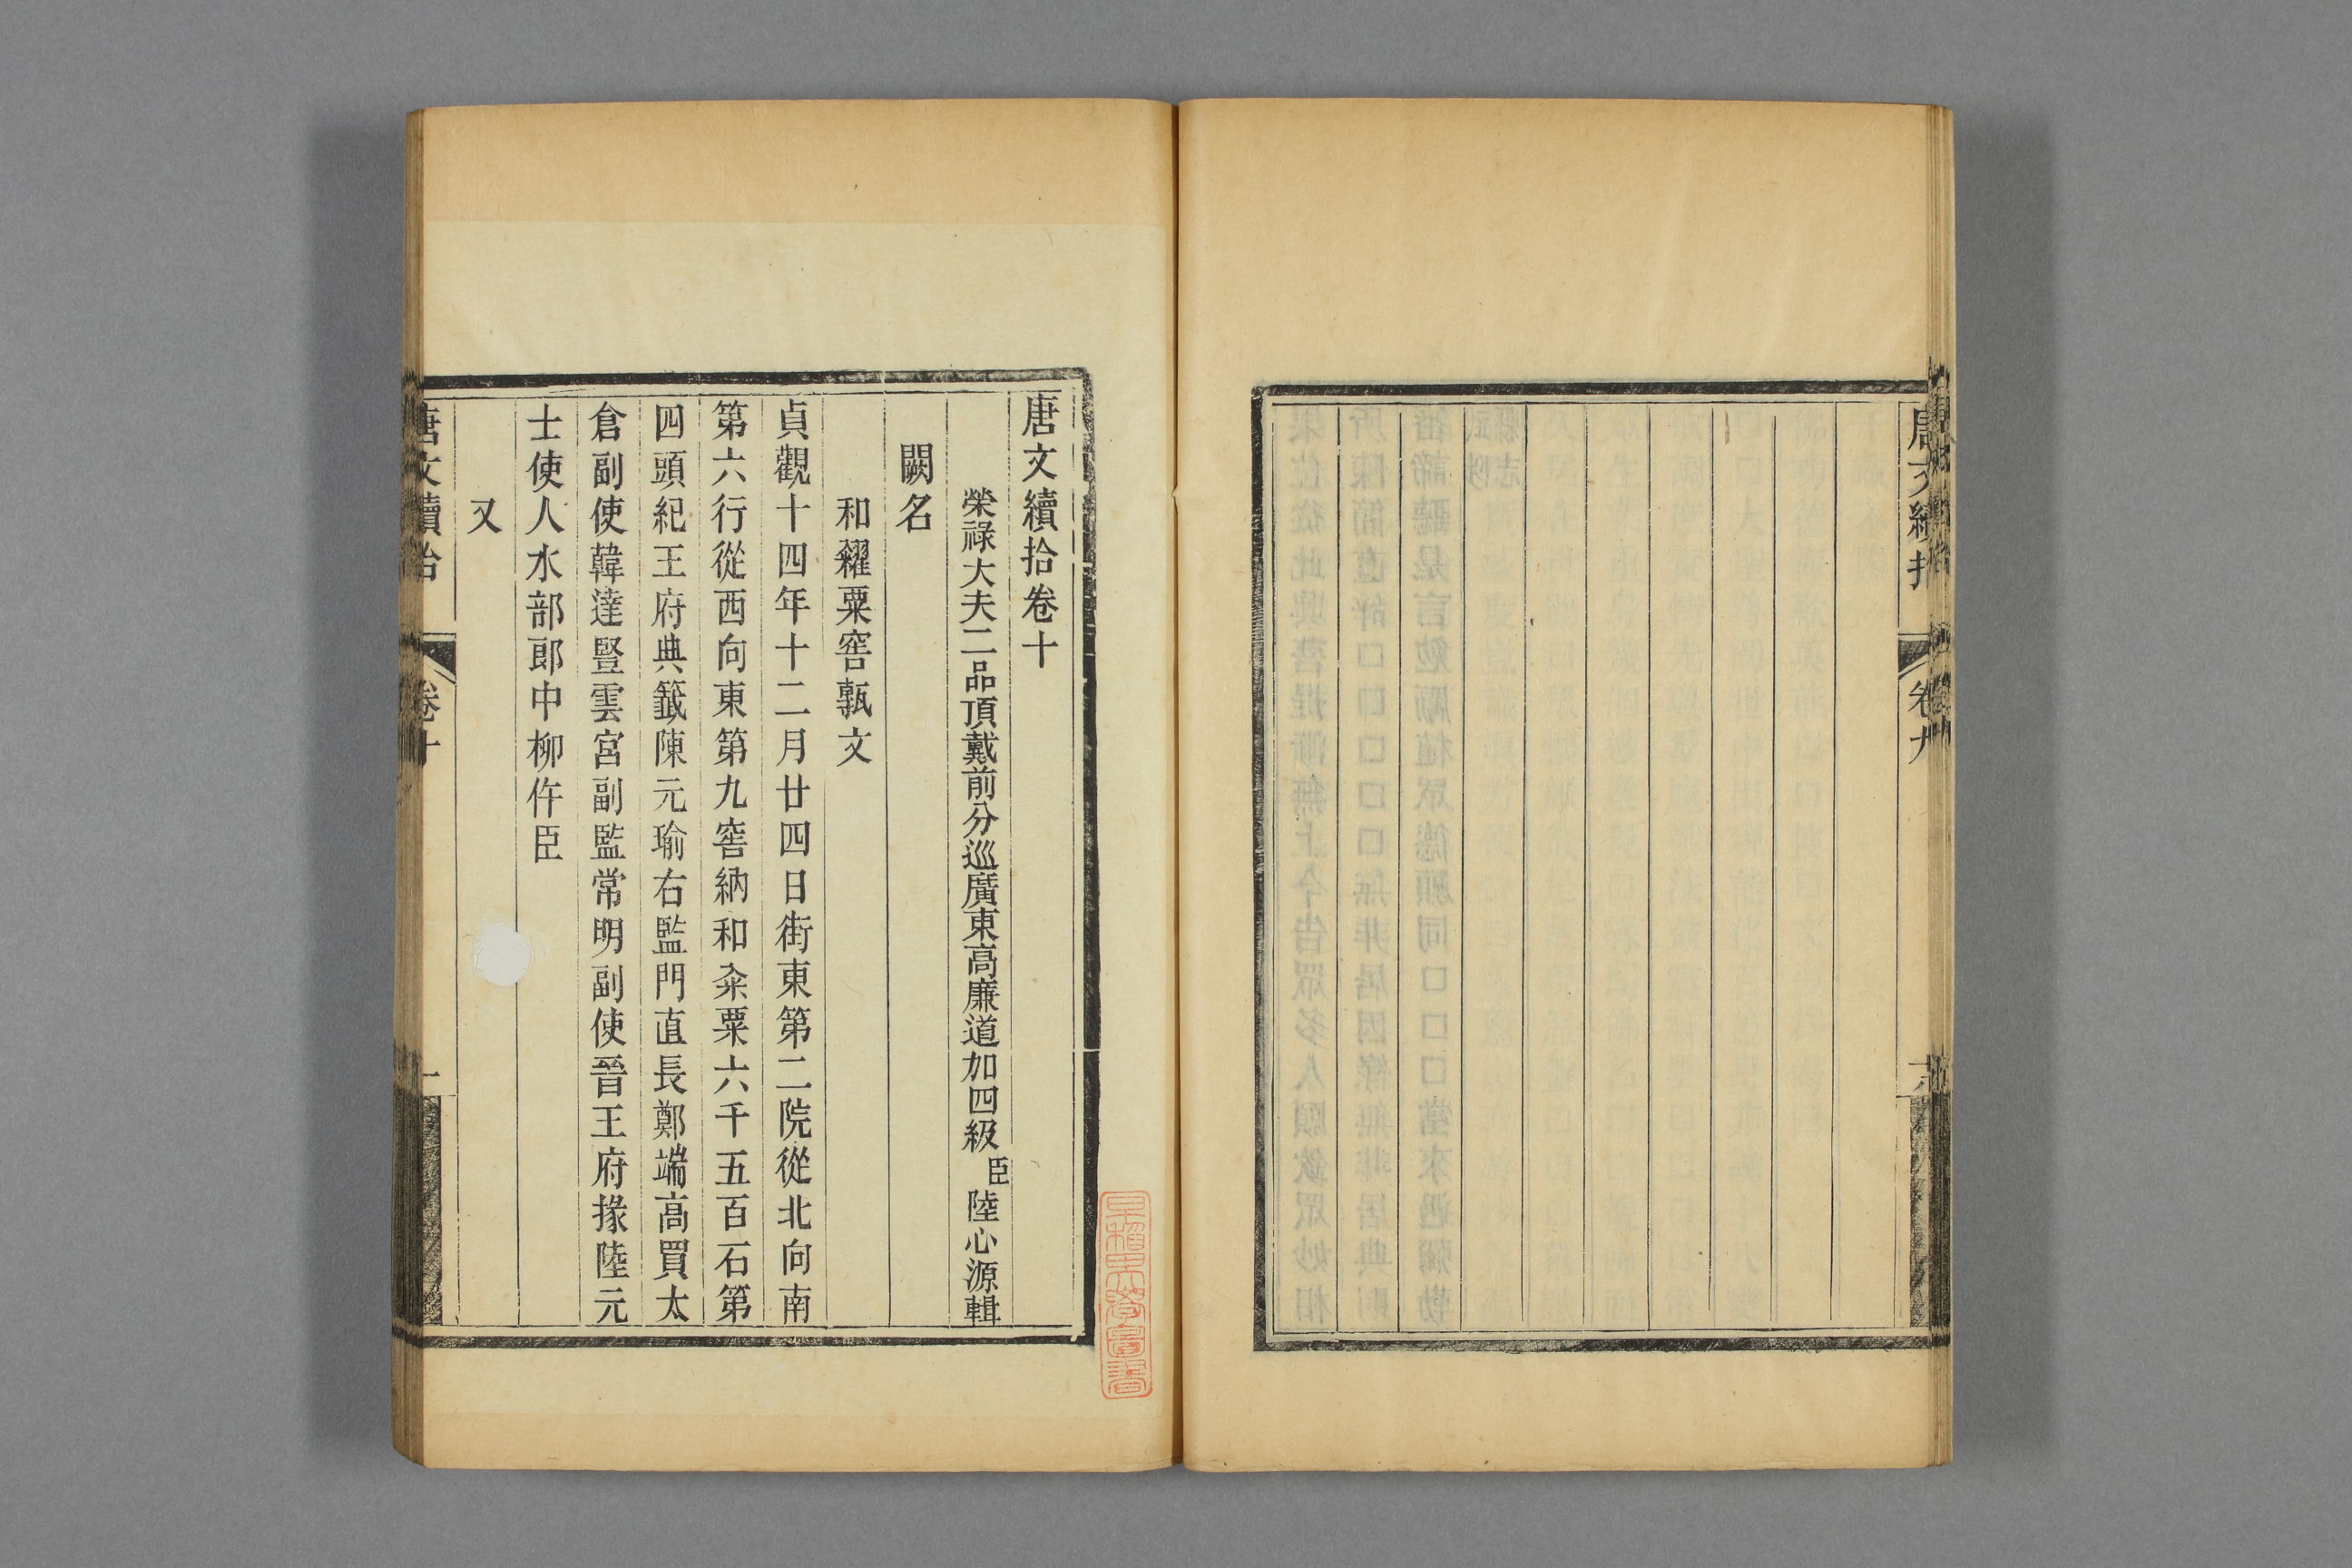 唐文續拾卷十
榮祿大夫二品頂戴前分巡廣東高廉道加四級臣陸心源輯
闕名
和糴粟窖甎文
貞觀十四年十二月廿四日街東第二院從北向南
第六行從西向東第九窖納和籴粟六千五百石第
四頭紀王府典籤陳元瑜右監門直長鄭端高買太
倉副使韓達豎雲宮副監常明副使晉王府掾陸元
士使人水部郎中柳仵臣
又
唐文續拾
卷十
一
唐文續拾
卷九
早稻田大學圖書